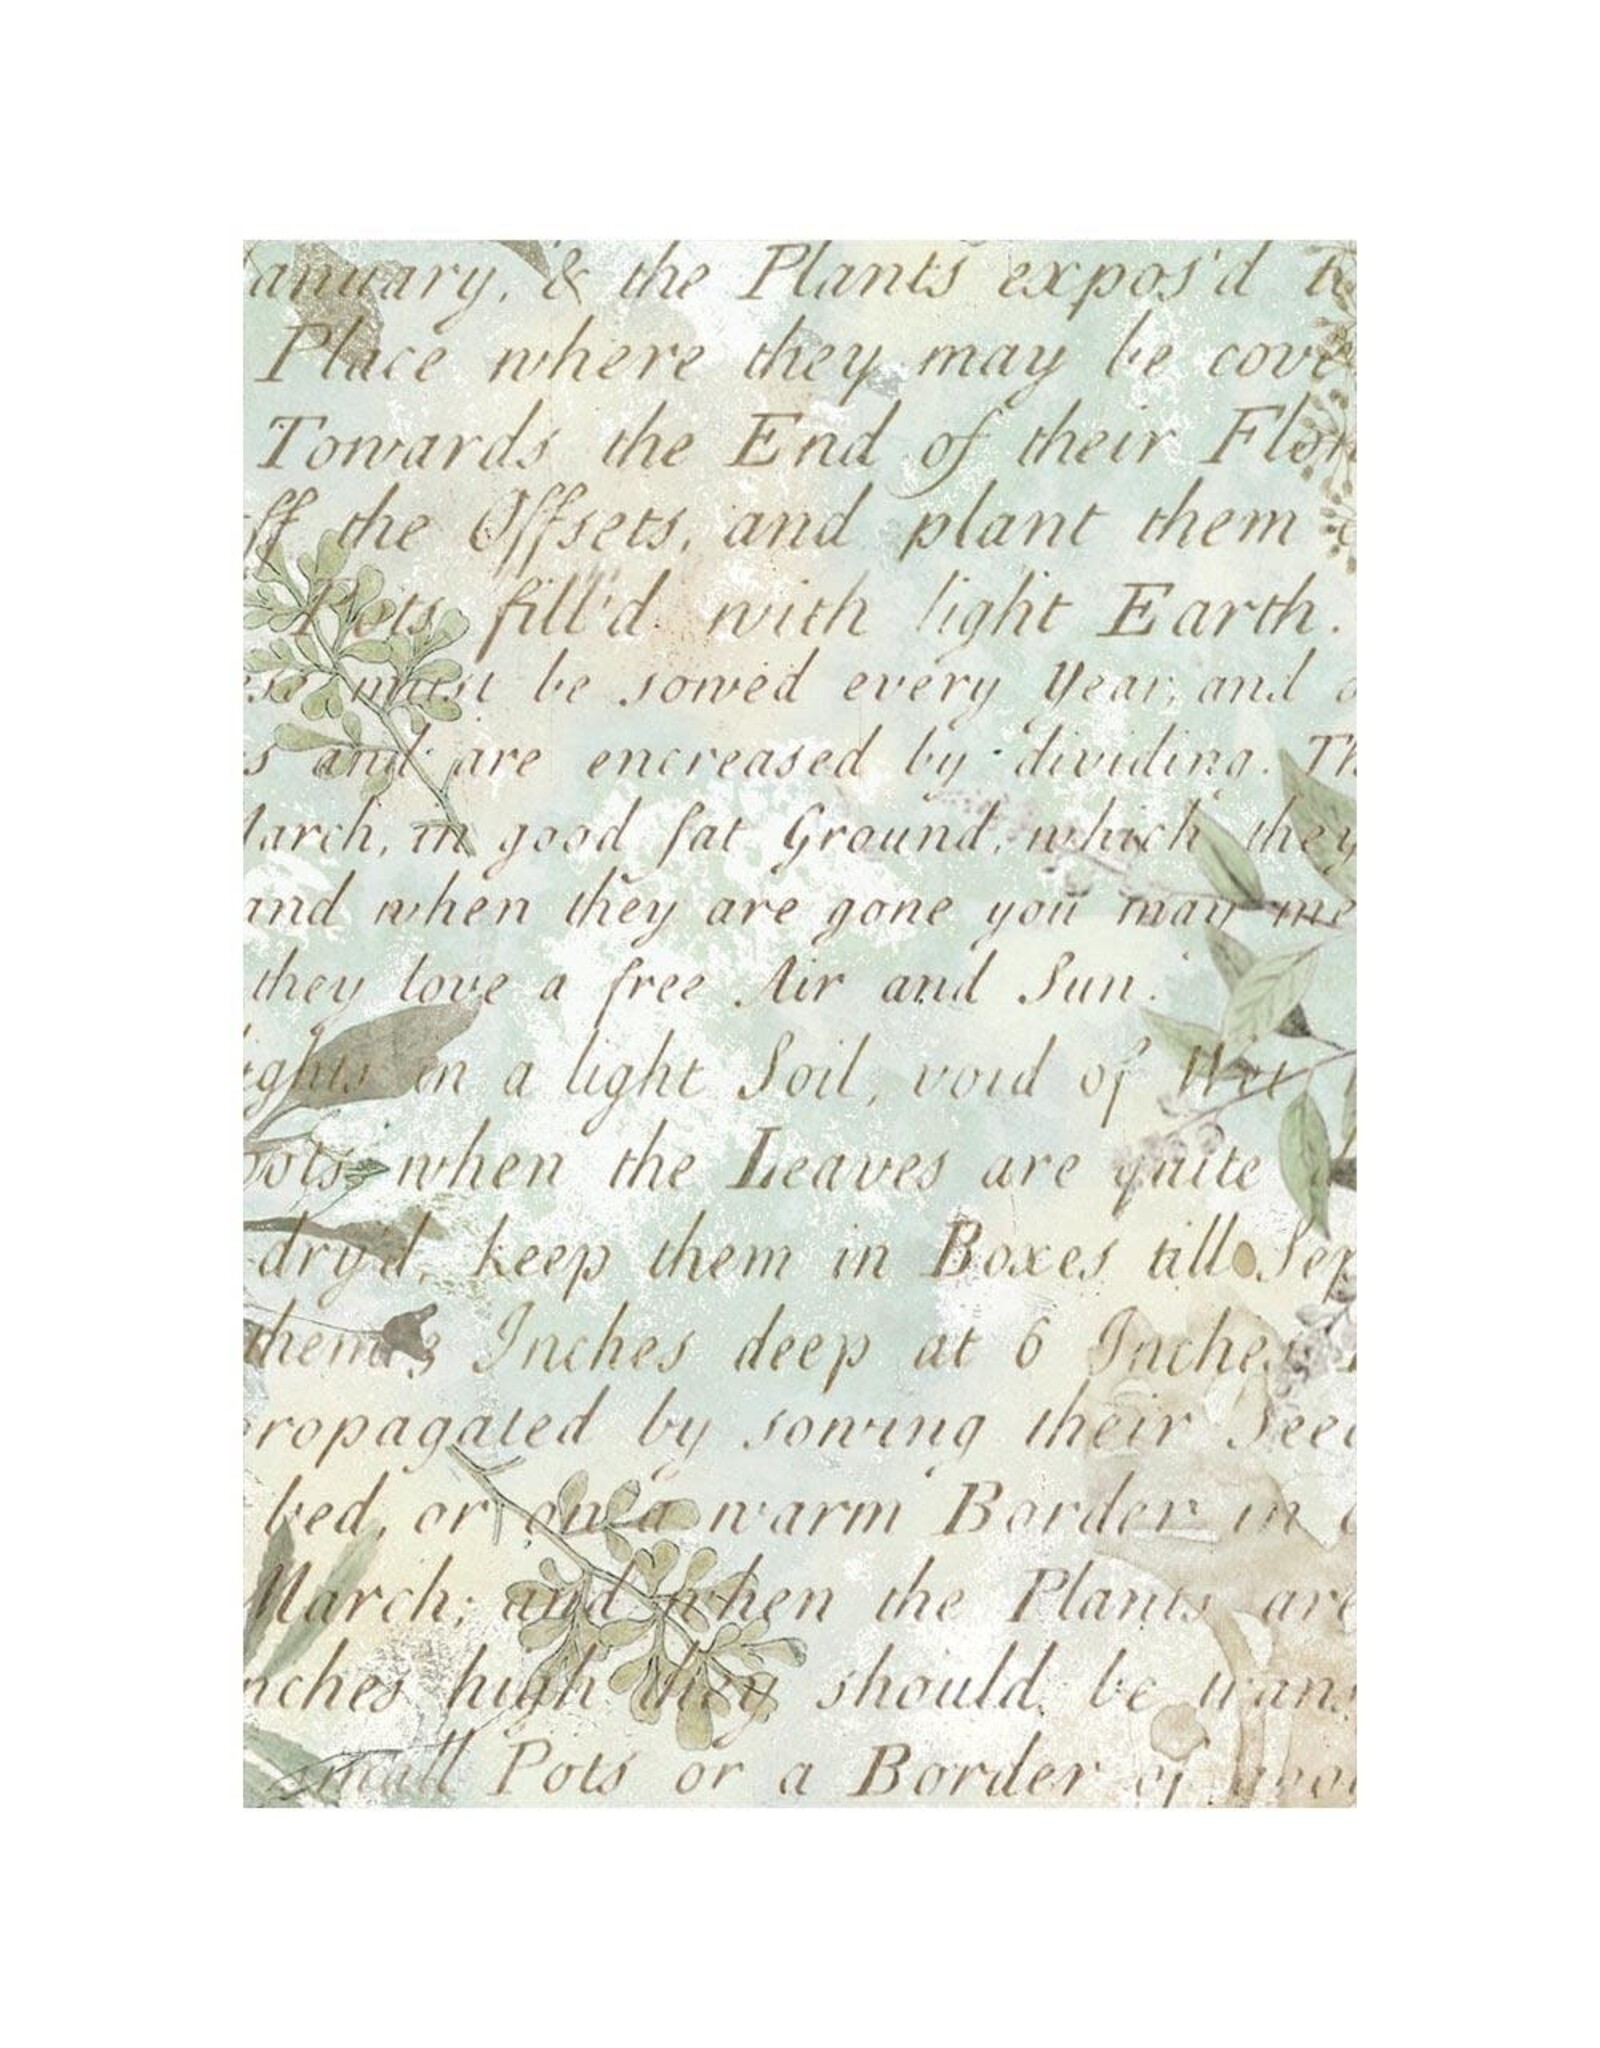 anuary, & the Plants expos'd t
Place where they may be cove
Towards the End of their Flow
ff the Offsets, and plant them
Pots fill'd with light Earth.
ese must be sowed every Year, and o
s and are encreased by dividing. Th
March, in good fat Ground, which they
and when they are gone you may me
they love a free Air and Sun.
ights in a light Soil, void of Wet
oots when the Leaves are quite
dry'd, keep them in Boxes till Sep
them 3 Inches deep at 6 Inches
ropagated by sowing their Seed
bed, or on a warm Border in
March; and when the Plants are
nches high they should be trans
small Pots or a Border of good